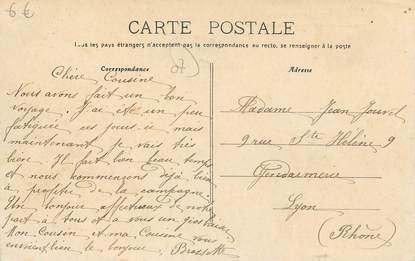 6€
CARTE POSTALE
Tous les pays étrangers n'acceptent pas la correspondance au recto, se renseigner à la poste
Correspondance
07
Adresse
Chère Cousine
Nous avons fait un bon
voyage. J'ai été un peu
fatiguée ces jours ci mais
maintenant je vais très
bien. Il fait bon beau temps
et nous commençons déjà bien
à profiter de la campagne.
Un bonjour affectueux de notre
part à tous et à vous un
Mon Cousin et ma Cousine vous
envoient bien le bonjour.
Madame Jean Jouvet
9 rue Ste Hélène 9
Gendarmerie
Lyon
(Rhône)